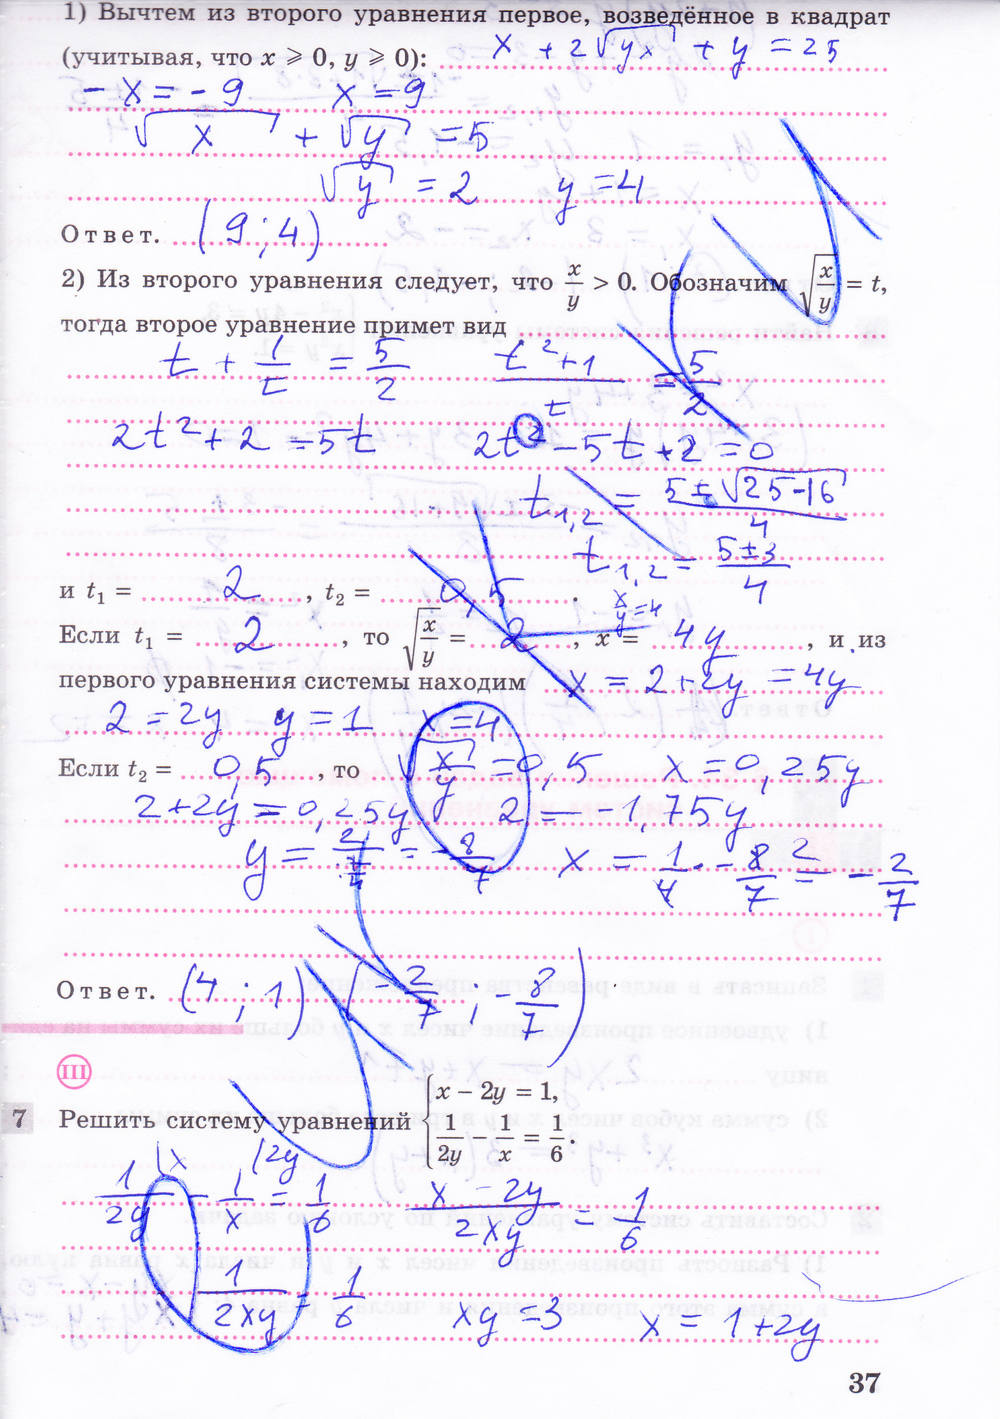 1) Вычтем из второго уравнения первое, возведённое в квадрат
(учитывая, что x ⩾ 0, y ⩾ 0): x + 2√yx + y = 25
- x = - 9 x = 9
√x + √y = 5
√y = 2 y = 4
Ответ. (9 ; 4)
2) Из второго уравнения следует, что x/y > 0. Обозначим √(x/y) = t,
тогда второе уравнение примет вид
t + 1/t = 5/2 (t² + 1)/t = 5/2
2t² + 2 = 5t 2t² - 5t + 2 = 0
t1,2 = (5 ± √25-16)/4
t1,2 = (5 ± 3)/4
и t1 = 2, t2 = 0,5.
x/y = 4
Если t1 = 2, то √(x/y) = 2, x = 4y, и из
первого уравнения системы находим x = 2 + 2y = 4y
2 = 2y y = 1 x = 4
Если t2 = 0,5, то √(x/y) = 0,5 x = 0,25y
2 + 2y = 0,25y 2 = -1,75y
y = = - 8/7 x = 1/4 · - 8/7 = - 2/7
Ответ. (4 ; 1) 2/7 ; - 8/7)
III
7 Решить систему уравнений { x – 2y = 1,
1/2y – 1/x = 1/6.
1/2y - 1/x = 1/6 (x - 2y)/2xy = 1/6
1/2xy = 1/6 xy = 3 x = 1 + 2y
37